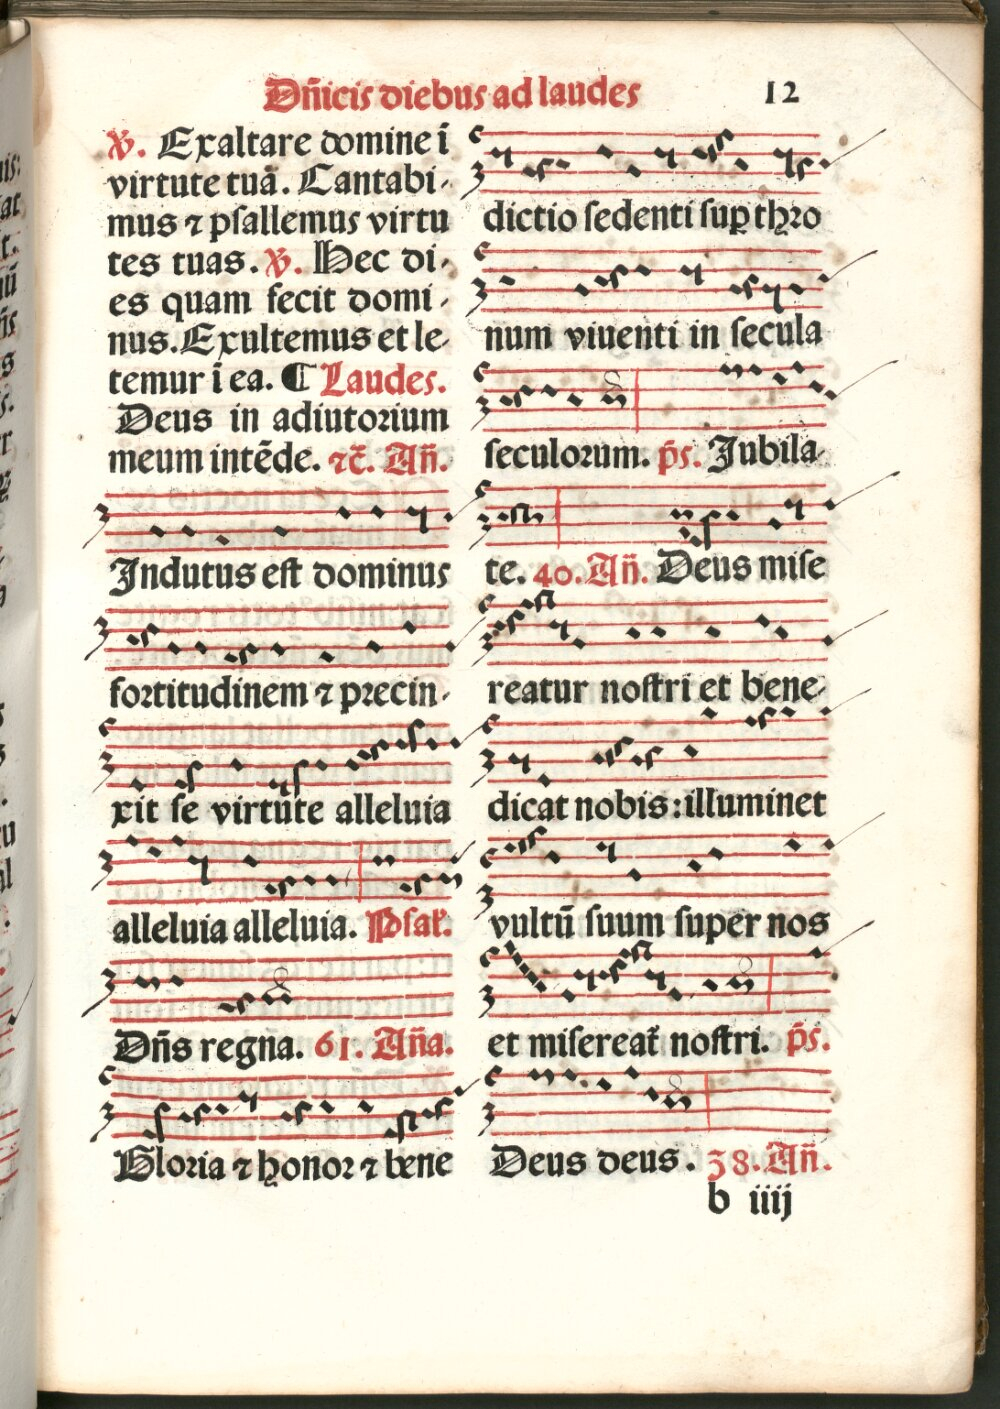 Dñicis diebus ad laudes 12
℣. Exaltare domine ī
virtute tuā. Cantabi-
mus ⁊ psallemus virtu
tes tuas. ℣. Hec di-
es quam fecit domi-
nus. Exultemus et le-
temur ī ea. ¶ Laudes.
Deus in adiutorium
meum intēde. ⁊c̄. Añ.
Indutus est dominus
fortitudinem ⁊ precin-
xit se virtute alleluia
alleluia alleluia. Psal̄.
Dñs regna. 61. Aña.
Gloria ⁊ honor ⁊ bene
dictio sedenti suꝑ thro
num viuenti in secula
seculorum. p̄s. Jubila-
te. 40. Añ. Deus mise
reatur nostri et bene-
dicat nobis: illuminet
vultū suum super nos
et misereat᷑ nostri. p̄s.
Deus deus. 38. Añ.
b iiij